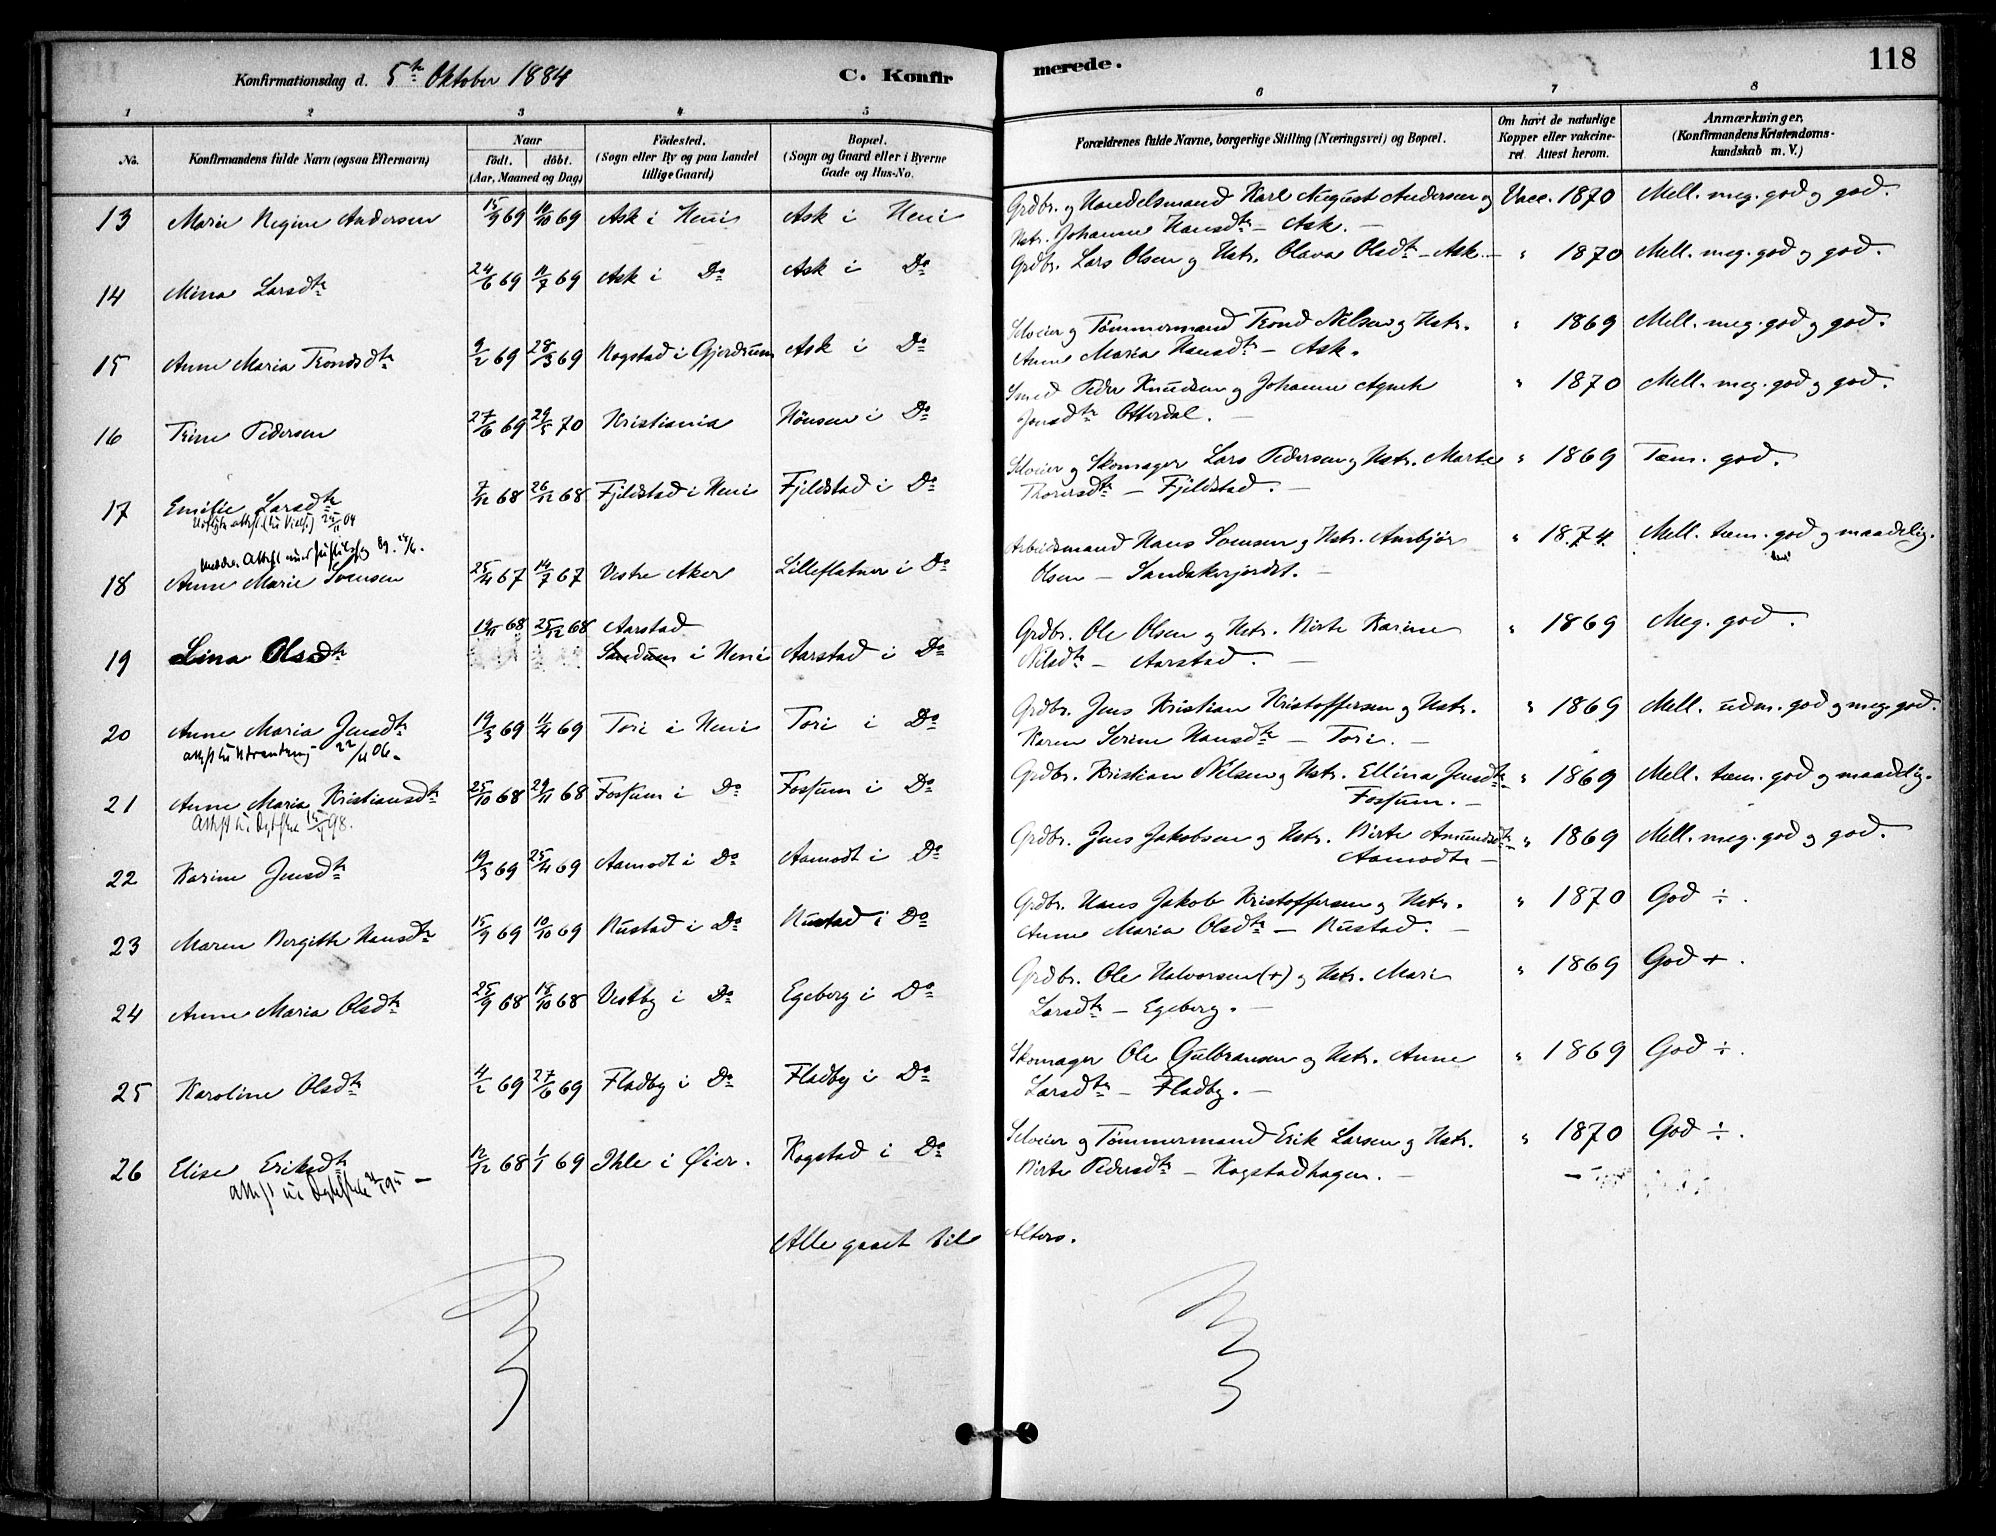 Konfirmationsdag d. 5te Oktober 1884 C. Konfir merede. 118
1 2 3 4 5 6 7 8
No. Konfirmandens fulde Navn (ogsaa Efternavn) Naar født. døbt. (Aar, Maaned og Dag) Födested. (Sogn eller By og paa Landet tillige Gaard) Bopæl. (Sogn og Gaard eller i Byerne Gade og Hus-No. Forældrenes fulde Navne, borgerlige Stilling (Næringsvei) og Bopæl. Om havt de naturlige Kopper eller vakcineret. Attest herom. Anmærkninger. (Konfirmandens Kristendomskundskab m. V.)
13 Marie Regine Andersen 15/9 69 10/10 69 Ask i Heni Ask i Heni Grdbr. og Handelsmand Karl August Andersen og Vacc. 1870 Mell. meg. god og god.
Hstr. Johanne Hansdtr – Ask. –
14 Mina Larsdtr 24/6 69 11/7 69 Ask i Do Ask i Do Grdbr. Lars Olsen og Hstr. Olava Olsdtr – Ask. – " 1870 Mell. meg. god og god.
15 Anne Maria Trondsdtr 9/2 69 28/3 69 Kogstad i Gjerdrum Ask i Do Selveier og Tømmermand Trond Nilsen og Hstr. " 1869 Mell. meg. god og god.
Anne Maria Hansdtr – Ask.
16 Trine Pedersen 27/6 69 29/5 70 Kristiania Hønsen i Do Smed Peder Knudsen og Johanne Agnete " 1870 Mell. meg. god og god.
Jensdtr Otterdal. –
17 Emilie Larsdtr 7/12 68 26/12 68 Fjeldstad i Heni Fjeldstad i Do Selveier og Skomager Lars Pedersen og Hstr. Marte " 1869 Tem. god.
Thorersdtr – Fjeldstad. –
18 Anne Marie Svensen 25/4 67 14/7 67 Vestre Aker Lilleflatner i Do Arbeidsmand Hans Svensen og Hstr. Anbjør " 1874. Mell. tem. god og maadelig.
Olsen – Sandakerjordet. –
19 Lina Olsdtr 19/11 68 25/12 68 Aarstad i Heni Aarstad i Do Grdbr. Ole Olsen og Hstr. Birte Karine " 1869 Meg. god.
Nilsdtr – Aarstad. –
20 Anne Maria Jensdtr 19/3 69 11/4 69 Tori i Heni Tori i Do Grdbr. Jens Kristian Kristoffersen og Hstr. " 1869 Mell. udm. god og meg. god.
Karen Serine Hansdtr – Tori. –
21 Anne Maria Kristiansdtr 25/10 68 29/11 68 Fossum i Do Fossum i Do Grdbr. Kristian Nilsen og Hstr. Ellina Jensdtr – " 1869 Mell. tem. god og maadelig.
Fossum. –
22 Karine Jensdtr 19/3 69 25/4 69 Aamodt i Do Aamodt i Do Grdbr. Jens Jakobsen og Hstr. Birte Amundsdtr – " 1869 Mell. meg. god og god.
Aamodt –
23 Maren Bergitte Hansdtr 15/9 69 10/10 69 Rustad i Do Rustad i Do Grdbr. Hans Jakob Kristoffersen og Hstr. " 1870 God ÷.
Anne Maria Olsdtr – Rustad. –
24 Anne Maria Olsdtr 25/9 68 18/10 68 Vestby i Do Egeberg i Do Grdbr. Ole Halvorsen (+) og Hstr. Mari " 1869 God +.
Larsdtr – Egeberg. –
25 Karoline Olsdtr 4/2 69 27/6 69 Fladby i Do Fladby i Do Skomager Ole Gulbransen og Hstr. Anne " 1869 God ÷.
Larsdtr – Fladby. –
26 Elise Eriksdtr 12/12 68 1/1 69 Ihle i Øier. Kogstad i Do Selveier og Tømmermand Erik Larsen og Hstr. " 1870 God ÷.
Birte Pedersdtr – Kogstadhagen. –
Alle gaaet til Alters.